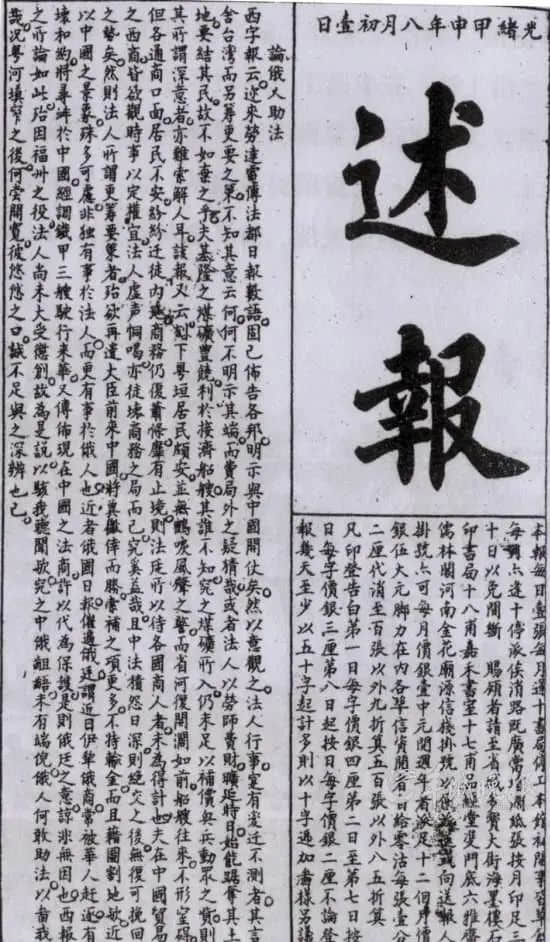 光緒甲申年八月初壹日
述報
本報每日壹張每逢十書局停工本館新聞事
每亦逢十停派俟消路既廣常增紙張按月印足三
十日以免間斷 賜顧者請至省多寶大街海墨樓石
印書局十八甫嘉禾書室十七甫品經堂雙門底六雅齋
儒林閣河南金花廟源信棧掛號以便派送或向送報人
掛號亦可每月價銀壹中元週年者派足十二個月價
銀伍大元脚力在內各埠信資閱者日給零沽每張壹分
二厘代消至百張以外九折算五百張以外八五折算
凡印登告白第一日每字價銀四厘第二日至第七日按
日每字價銀三厘第八日起按日每字價銀二厘不論登
報幾天至少以五十字起計多則以十字遞加畫樣另議
論俄人助法
西字報云近來勞達電傳法都日報數語固已佈告各邦明示與中國開仗矣然以意觀之法人行事定有密近不測者其言
舍台灣而另籌更要之策不知其意云何何不明示其端而費局外之疑猜哉或者法人以勞師費財曠延時日始能踞奪其土
地要結其民故不如棄之乎夫基隆之煤礦豐饒利於接濟船艘其誰不知究之煤礦所入仍未足以補償興兵動眾之費則
其所謂深意者亦難索解人耳該報又云刻下粵垣居民頗安並無鶴唳風聲之警而省河復開瀾如前船艘往來不形窒碍
但各通商口面居民不安紛紛迁徒內地商務仍復蕭條靡有止境則法廷所以待各國商人者未為得計也夫在中國貿易
之西商皆欲觀時事以定權宜法人虛声恫喝亦徒壞商務之局而已究奚益哉且中法積怨日深則絕交之後無復可挽回
之勢矣然則法人所謂更籌要策者殆欲再遣大臣前來中國將冀徼倖而勝索補之項更多不特輸金而且藉圖割地歟近
以中國之景象殊多可慮非獨有事於法人而更有事於俄人也近者俄國日報催逼俄廷謂近日伊犂俄商常被華人赶逐有
壞和約將尋衅於中國經調鐵甲三艘駛行來華又傳佈現在中國之法商許以代為保護是則俄廷之意諒非無因也西報
之所論如此殆因福州之役法人尚未大受懲創故為是說以駭我聽聞歟究之中俄齟齬未有端倪俄人何敢助法以啬我
哉况粵河填窄之後何嘗開寬彼悠悠之口誠不足與之深辨也已